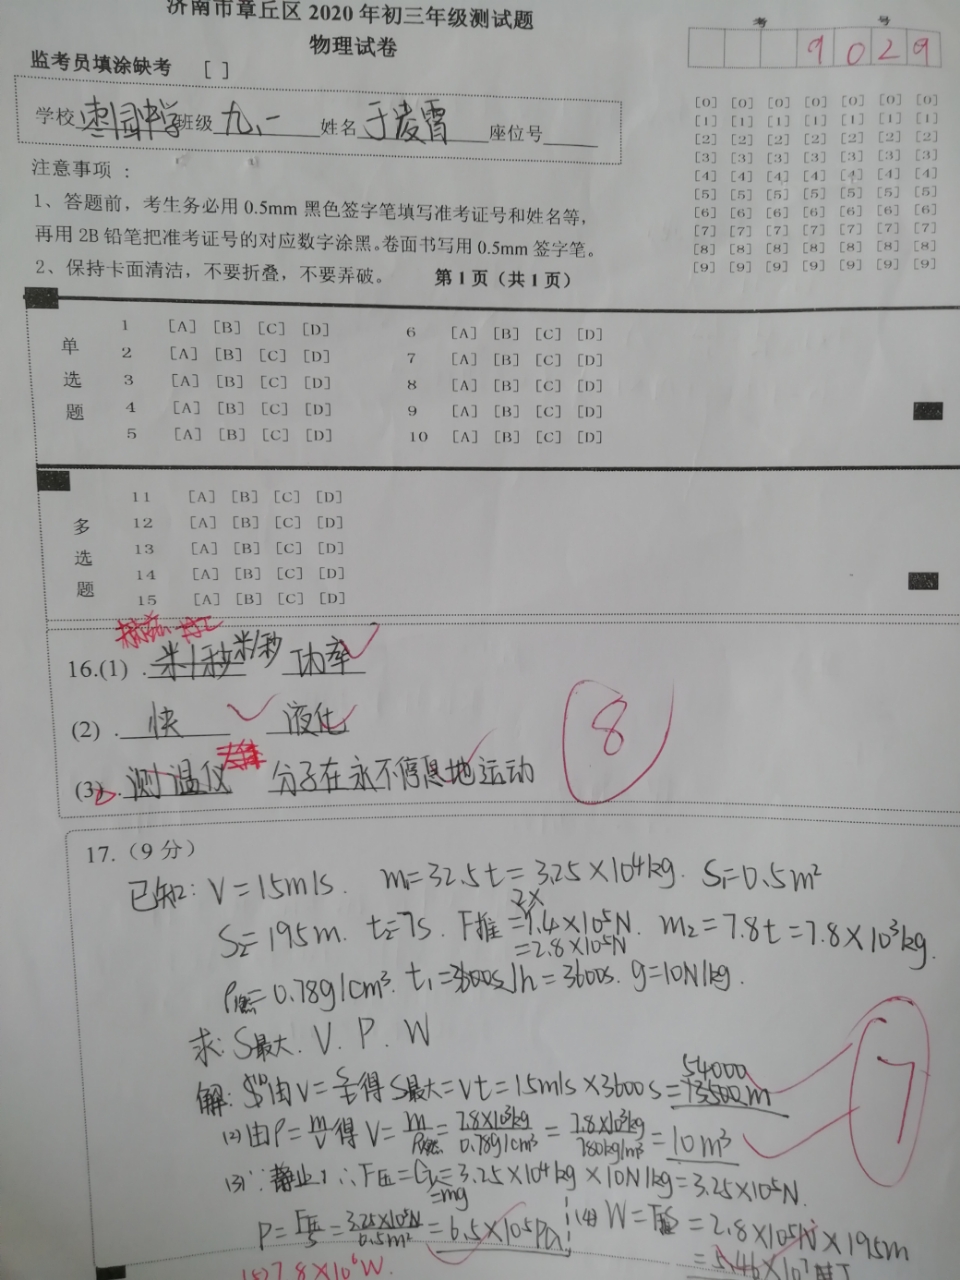 济南市章丘区2020年初三年级测试题
物理试卷
考 号
9 0 2 9
监考员填涂缺考 [ ]
学校 枣园中学 班级 九、一 姓名 于凌霄 座位号
注意事项：
1、答题前，考生务必用0.5mm黑色签字笔填写准考证号和姓名等，
再用2B铅笔把准考证号的对应数字涂黑。卷面书写用0.5mm签字笔。
2、保持卡面清洁，不要折叠，不要弄破。 第1页（共1页）
[0] [0] [0] [0] [0] [0] [0]
[1] [1] [1] [1] [1] [1] [1]
[2] [2] [2] [2] [2] [2] [2]
[3] [3] [3] [3] [3] [3] [3]
[4] [4] [4] [4] [4] [4] [4]
[5] [5] [5] [5] [5] [5] [5]
[6] [6] [6] [6] [6] [6] [6]
[7] [7] [7] [7] [7] [7] [7]
[8] [8] [8] [8] [8] [8] [8]
[9] [9] [9] [9] [9] [9] [9]
单选题
1 [A] [B] [C] [D] 6 [A] [B] [C] [D]
2 [A] [B] [C] [D] 7 [A] [B] [C] [D]
3 [A] [B] [C] [D] 8 [A] [B] [C] [D]
4 [A] [B] [C] [D] 9 [A] [B] [C] [D]
5 [A] [B] [C] [D] 10 [A] [B] [C] [D]
多选题
11 [A] [B] [C] [D]
12 [A] [B] [C] [D]
13 [A] [B] [C] [D]
14 [A] [B] [C] [D]
15 [A] [B] [C] [D]
16.(1) 米/秒 米/秒 功率
(2) 快 液化
8
(3) 测温仪 分子在永不停息地运动
17.（9分）
已知: V=15m/s. m1=32.5t=3.25×10⁴kg. S1=0.5m²
S2=195m. t2=7s. F推=2×1.4×10⁵N. m2=7.8t=7.8×10³kg.
=2.8×10⁵N
ρ燃=0.78g/cm³. t1=1h=3600s. g=10N/kg.
求: S最大. V. P. W
7
解: 由V=S/t得S最大=Vt=15m/s×3600s=54000m
(2)由ρ=m/V得V=m/ρ燃=7.8×10³kg/0.78g/cm³=7.8×10³kg/780kg/m³=10m³
(3)∵静止 ∴F压=G=mg=3.25×10⁴kg×10N/kg=3.25×10⁵N.
P=F压/S=3.25×10⁵N/0.5m²=6.5×10⁵Pa (4)W=FS=2.8×10⁵N×195m
=5.46×10⁷J
(5)7.8×10⁶W.